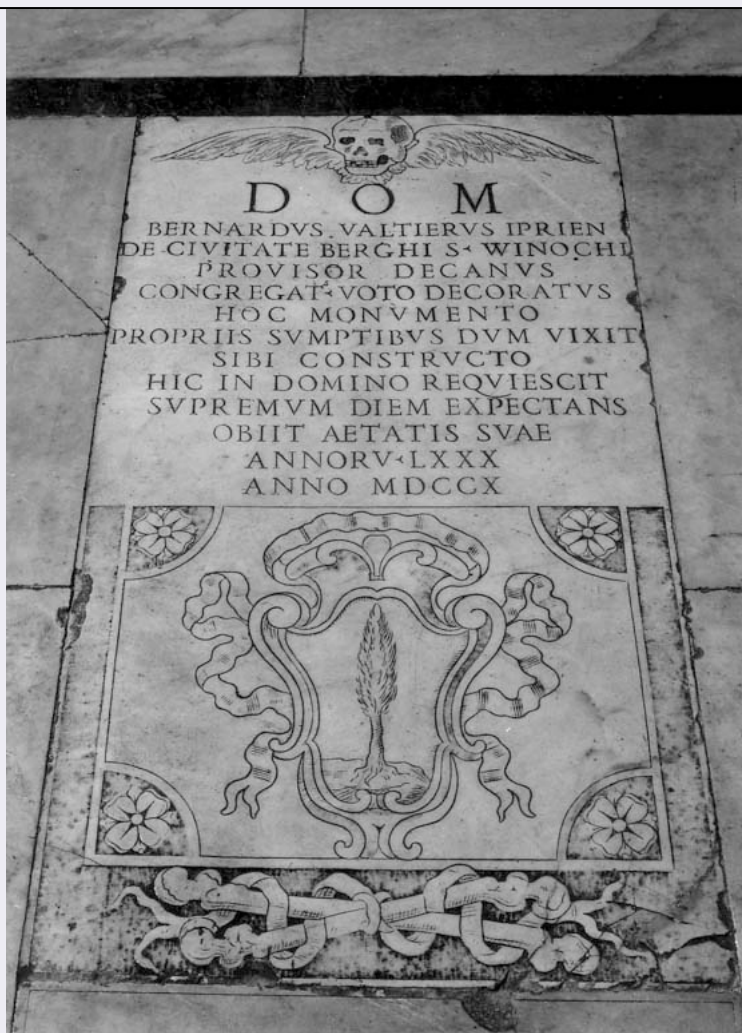 D O M
BERNARDVS VALTIERVS IPRIEN
DE CIVITATE BERGHI S WINOCHI
PROVISOR DECANVS
CONGREGAT VOTO DECORATVS
HOC MONVMENTO
PROPRIIS SVMPTIBVS DVM VIXIT
SIBI CONSTRVCTO
HIC IN DOMINO REQVIESCIT
SVPREMVM DIEM EXPECTANS
OBIIT AETATIS SVAE
ANNORV LXXX
ANNO MDCCX